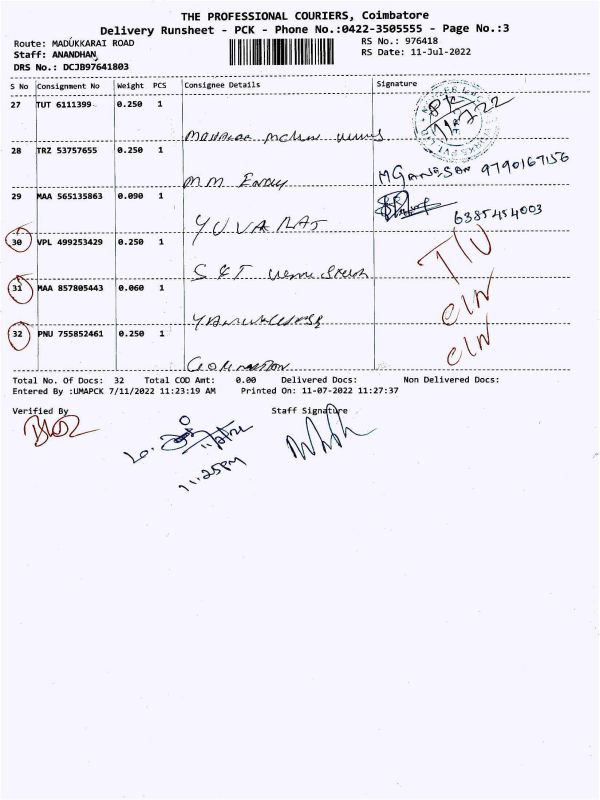 THE PROFESSIONAL COURIERS, Coimbatore
Delivery Runsheet - PCK - Phone No.:0422-3505555 - Page No.:3
Route: MADUKKARAI ROAD RS No.: 976418
Staff: ANANDHAN RS Date: 11-Jul-2022
DRS No.: DCJB97641803
S No Consignment No Weight PCS Consignee Details Signature
27 TUT 6111399 0.250 1
28 TRZ 53757655 0.250 1
MM
M Ganesan 9790167156
29 MAA 565135863 0.090 1
YUVARAJ
6385454003
30 VPL 499253429 0.250 1
S & T
31 MAA 857805443 0.060 1
C/N
32 PNU 755852461 0.250 1
C/N
Total No. Of Docs: 32 Total COD Amt: 0.00 Delivered Docs: Non Delivered Docs:
Entered By :UMAPCK 7/11/2022 11:23:19 AM Printed On: 11-07-2022 11:27:37
Verified By Staff Signature
11:25PM